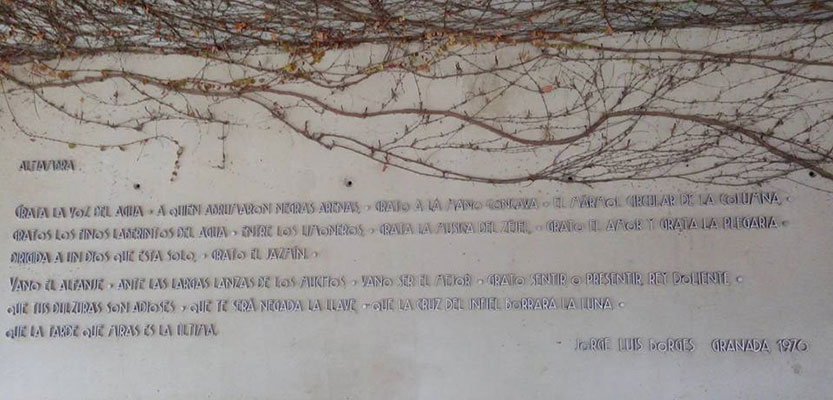 ALHAMBRA
GRATA LA VOZ DEL AGUA • A QUIEN ABRUMARON NEGRAS ARENAS, • GRATO A LA MANO CONCAVA • EL MÁRMOL CIRCULAR DE LA COLUMNA, •
GRATOS LOS FINOS LABERINTOS DEL AGUA • ENTRE LOS LIMONEROS, • GRATA LA MUSICA DEL ZÉJEL, • GRATO EL AMOR Y GRATA LA PLEGARIA •
DIRIGIDA A UN DIOS QUE ESTA SOLO, • GRATO EL JAZMÍN. •
VANO EL ALFANJE • ANTE LAS LARGAS LANZAS DE LOS MUCHOS • VANO SER EL MEJOR • GRATO SENTIR O PRESENTIR, REY DOLIENTE, •
QUE TUS DULZURAS SON ADIOSES • QUE TE SERÁ NEGADA LA LLAVE • QUE LA CRUZ DEL INFIEL BORRARA LA LUNA •
QUE LA TARDE QUE MIRAS ES LA ÚLTIMA.
JORGE LUIS BORGES GRANADA, 1976